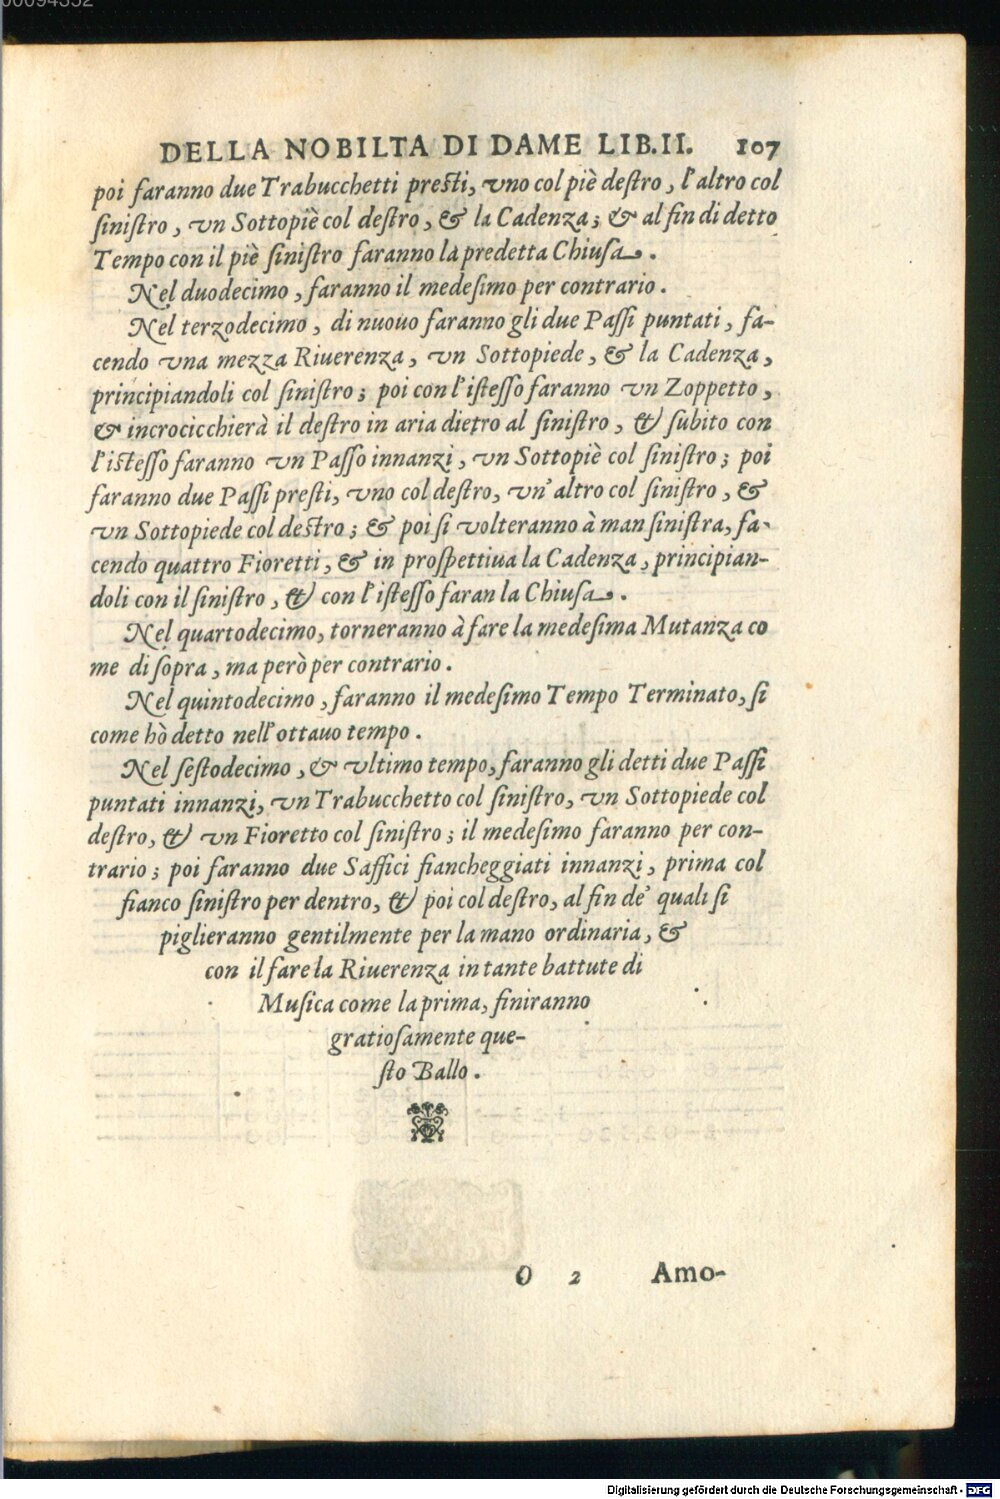 DELLA NOBILTA DI DAME LIB.II. 107
poi faranno due Trabucchetti presti, vno col piè destro, l'altro col
sinistro, vn Sottopiè col destro, & la Cadenza; & al fin di detto
Tempo con il piè sinistro faranno la predetta Chiusa.
Nel duodecimo, faranno il medesimo per contrario.
Nel terzodecimo, di nuouo faranno gli due Passi puntati, fa-
cendo vna mezza Riuerenza, vn Sottopiede, & la Cadenza,
principiandoli col sinistro; poi con l'istesso faranno vn Zoppetto,
& incrocicchierà il destro in aria dietro al sinistro, & subito con
l'istesso faranno vn Passo innanzi, vn Sottopiè col sinistro; poi
faranno due Passi presti, vno col destro, vn'altro col sinistro, &
vn Sottopiede col destro; & poi si volteranno à man sinistra, fa-
cendo quattro Fioretti, & in prospettiua la Cadenza, principian-
doli con il sinistro, & con l'istesso faran la Chiusa.
Nel quartodecimo, torneranno à fare la medesima Mutanza co
me di sopra, ma però per contrario.
Nel quintodecimo, faranno il medesimo Tempo Terminato, si
come hò detto nell'ottauo tempo.
Nel sestodecimo, & vltimo tempo, faranno gli detti due Passi
puntati innanzi, vn Trabucchetto col sinistro, vn Sottopiede col
destro, & vn Fioretto col sinistro; il medesimo faranno per con-
trario; poi faranno due Saffici fiancheggiati innanzi, prima col
fianco sinistro per dentro, & poi col destro, al fin de' quali si
piglieranno gentilmente per la mano ordinaria, &
con il fare la Riuerenza in tante battute di
Musica come la prima, finiranno
gratiosamente que-
sto Ballo.
O 2 Amo-
Digitalisierung gefördert durch die Deutsche Forschungsgemeinschaft - DFG